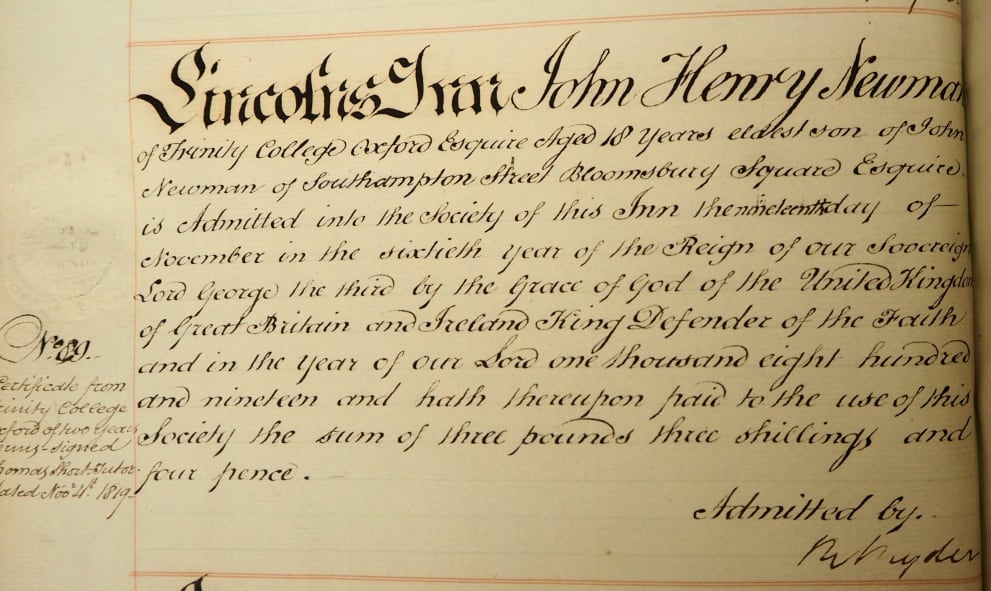 Lincolns Inn John Henry Newman
of Trinity College Oxford Esquire Aged 18 Years eldest son of John
Newman of Southampton Street Bloomsbury Square Esquire
is Admitted into the Society of this Inn the nineteenth day of
November in the sixtieth year of the Reign of our Sovereign
Lord George the third by the Grace of God of the United Kingdom
of Great Britain and Ireland King Defender of the Faith
and in the year of our Lord one thousand eight hundred
and nineteen and hath thereupon paid to the use of this
Society the sum of three pounds three shillings and
four pence.
Admitted by.
Ryder
No. 89.
Certificate from
Trinity College
Oxford of two Years
signed
Thomas Short Tutor
dated Novr. 4th. 1819
POUNDS